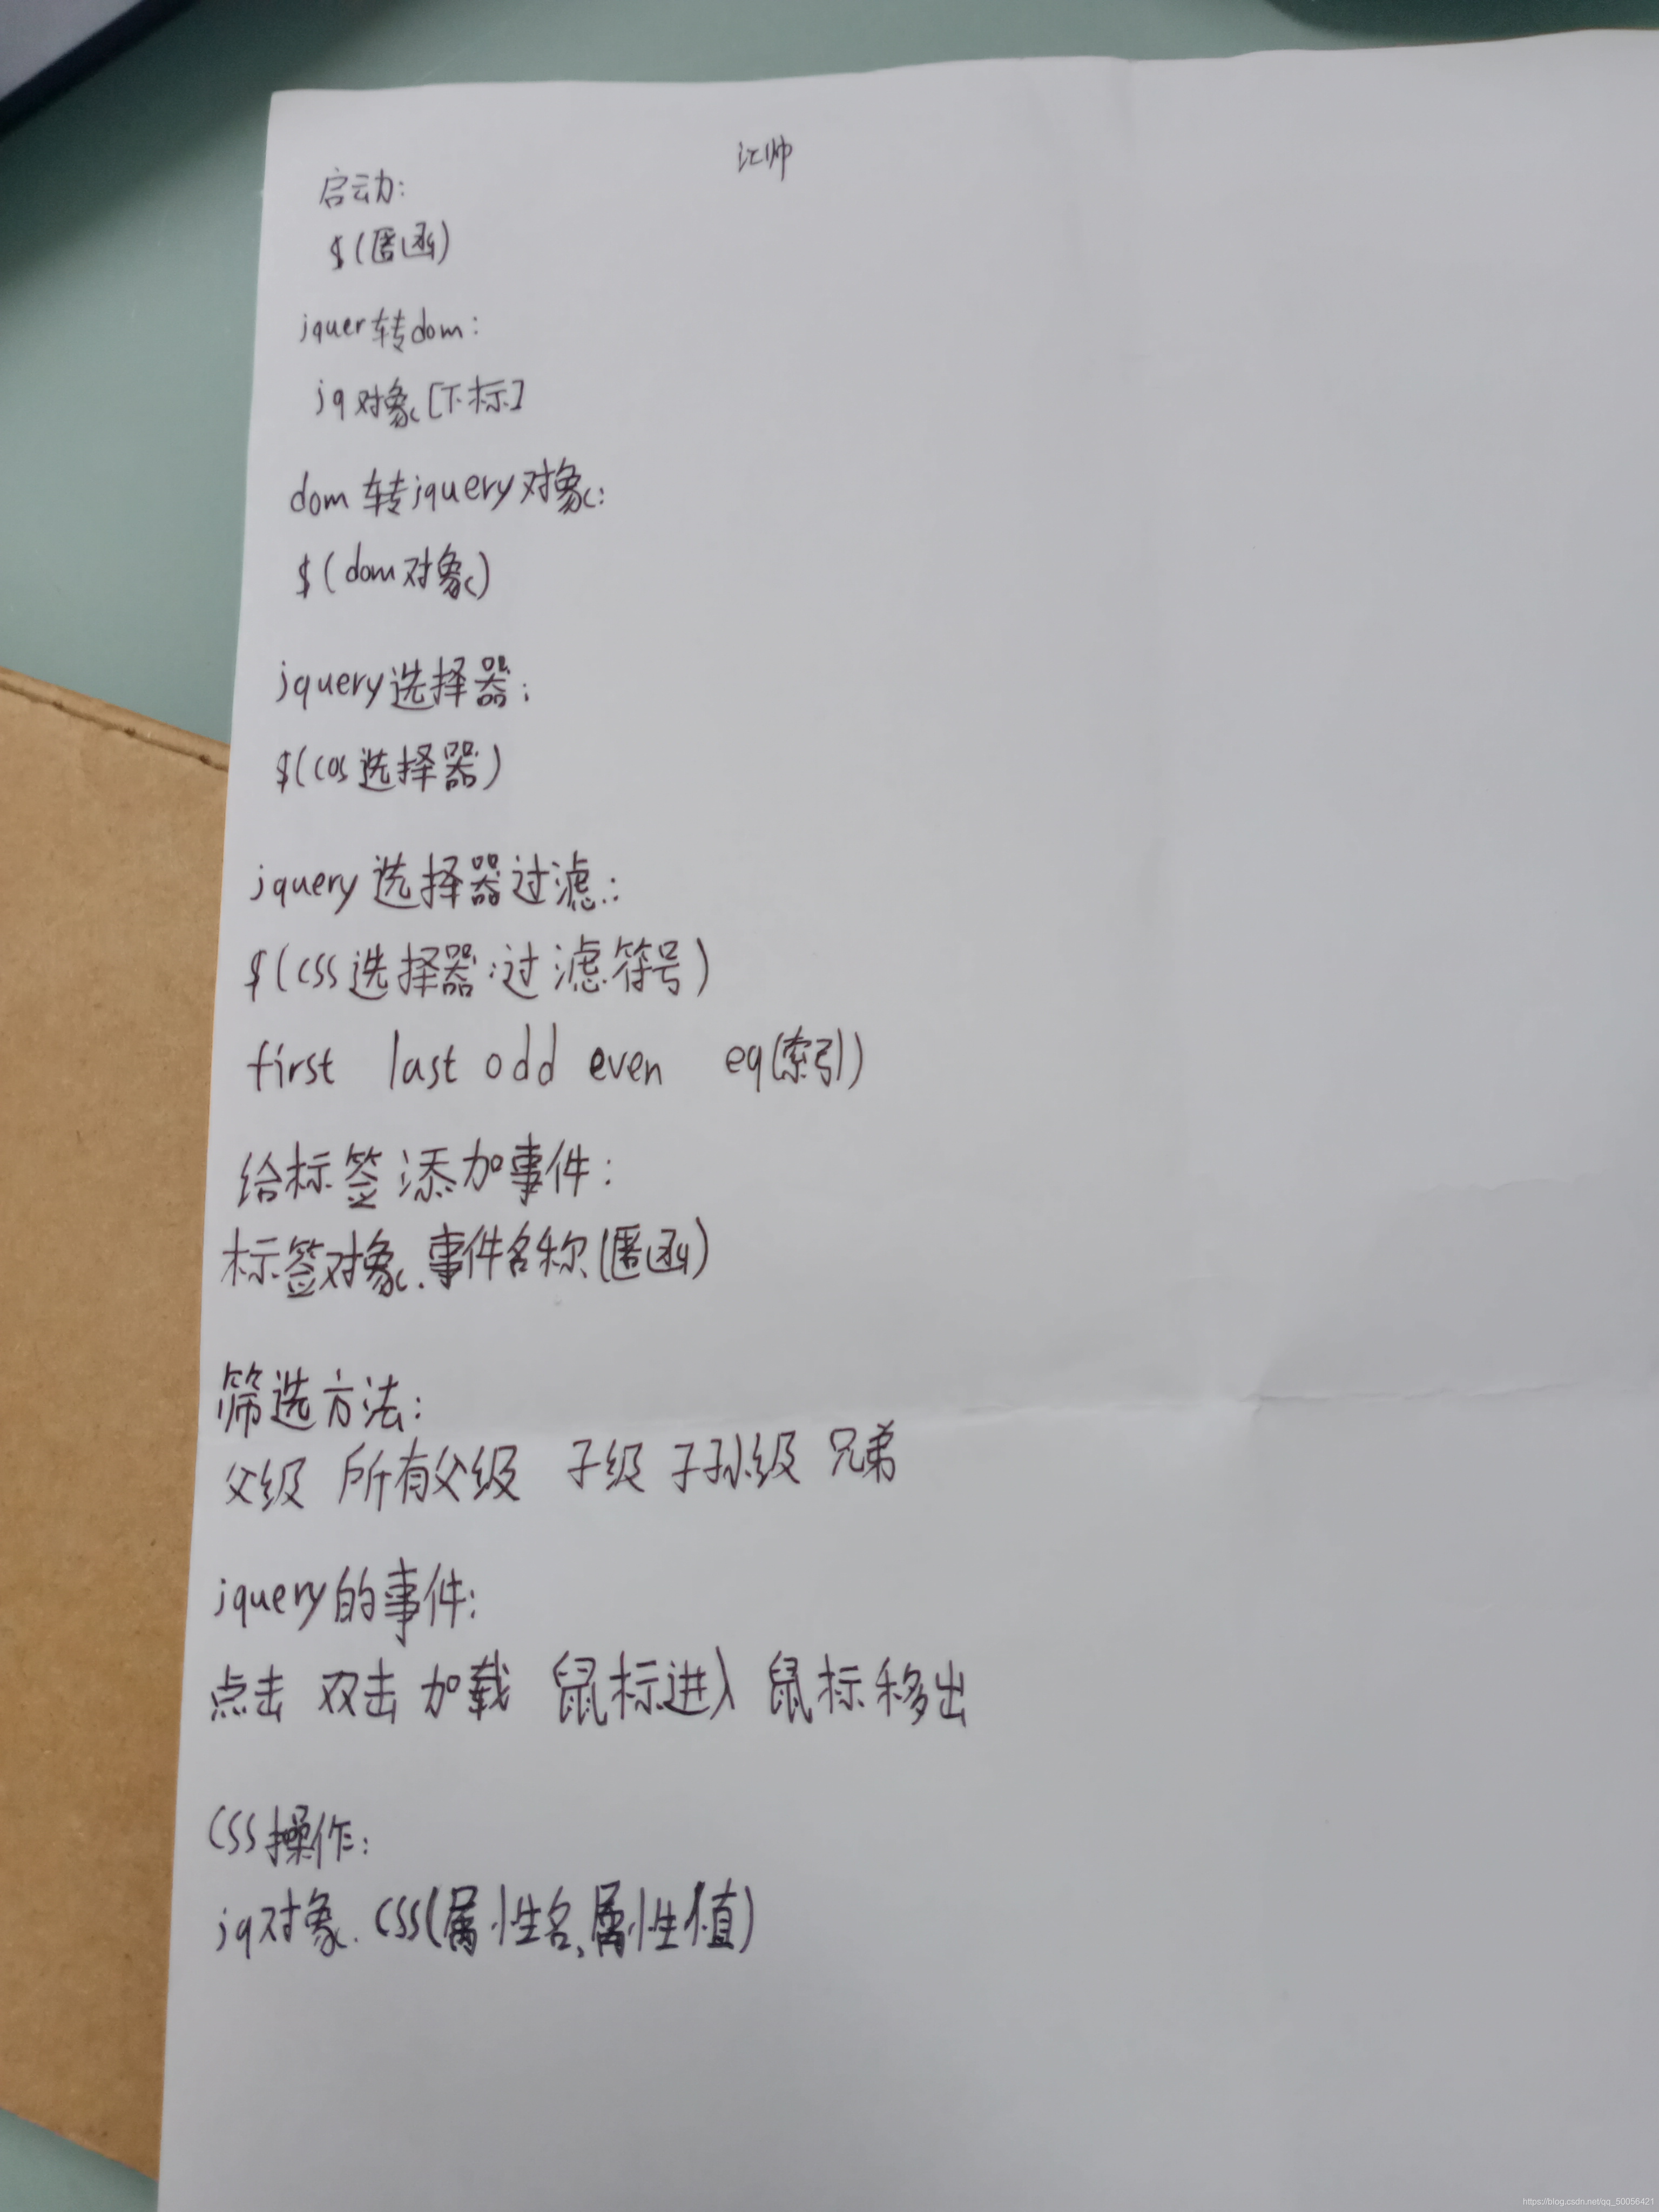 启动:
$(匿函)
jquer转dom:
jq对象[下标]
dom转jquery对象:
$(dom对象)
jquery选择器:
$(cos选择器)
jquery选择器过滤:
$(css选择器:过滤符号)
first last odd even eq(索引)
给标签添加事件:
标签对象.事件名称(匿函)
筛选方法:
父级 所有父级 子级 子孙级 兄弟
jquery的事件:
点击 双击 加载 鼠标进入 鼠标移出
css操作:
jq对象.css(属性名,属性值)
https://blog.csdn.net/qq_50056421